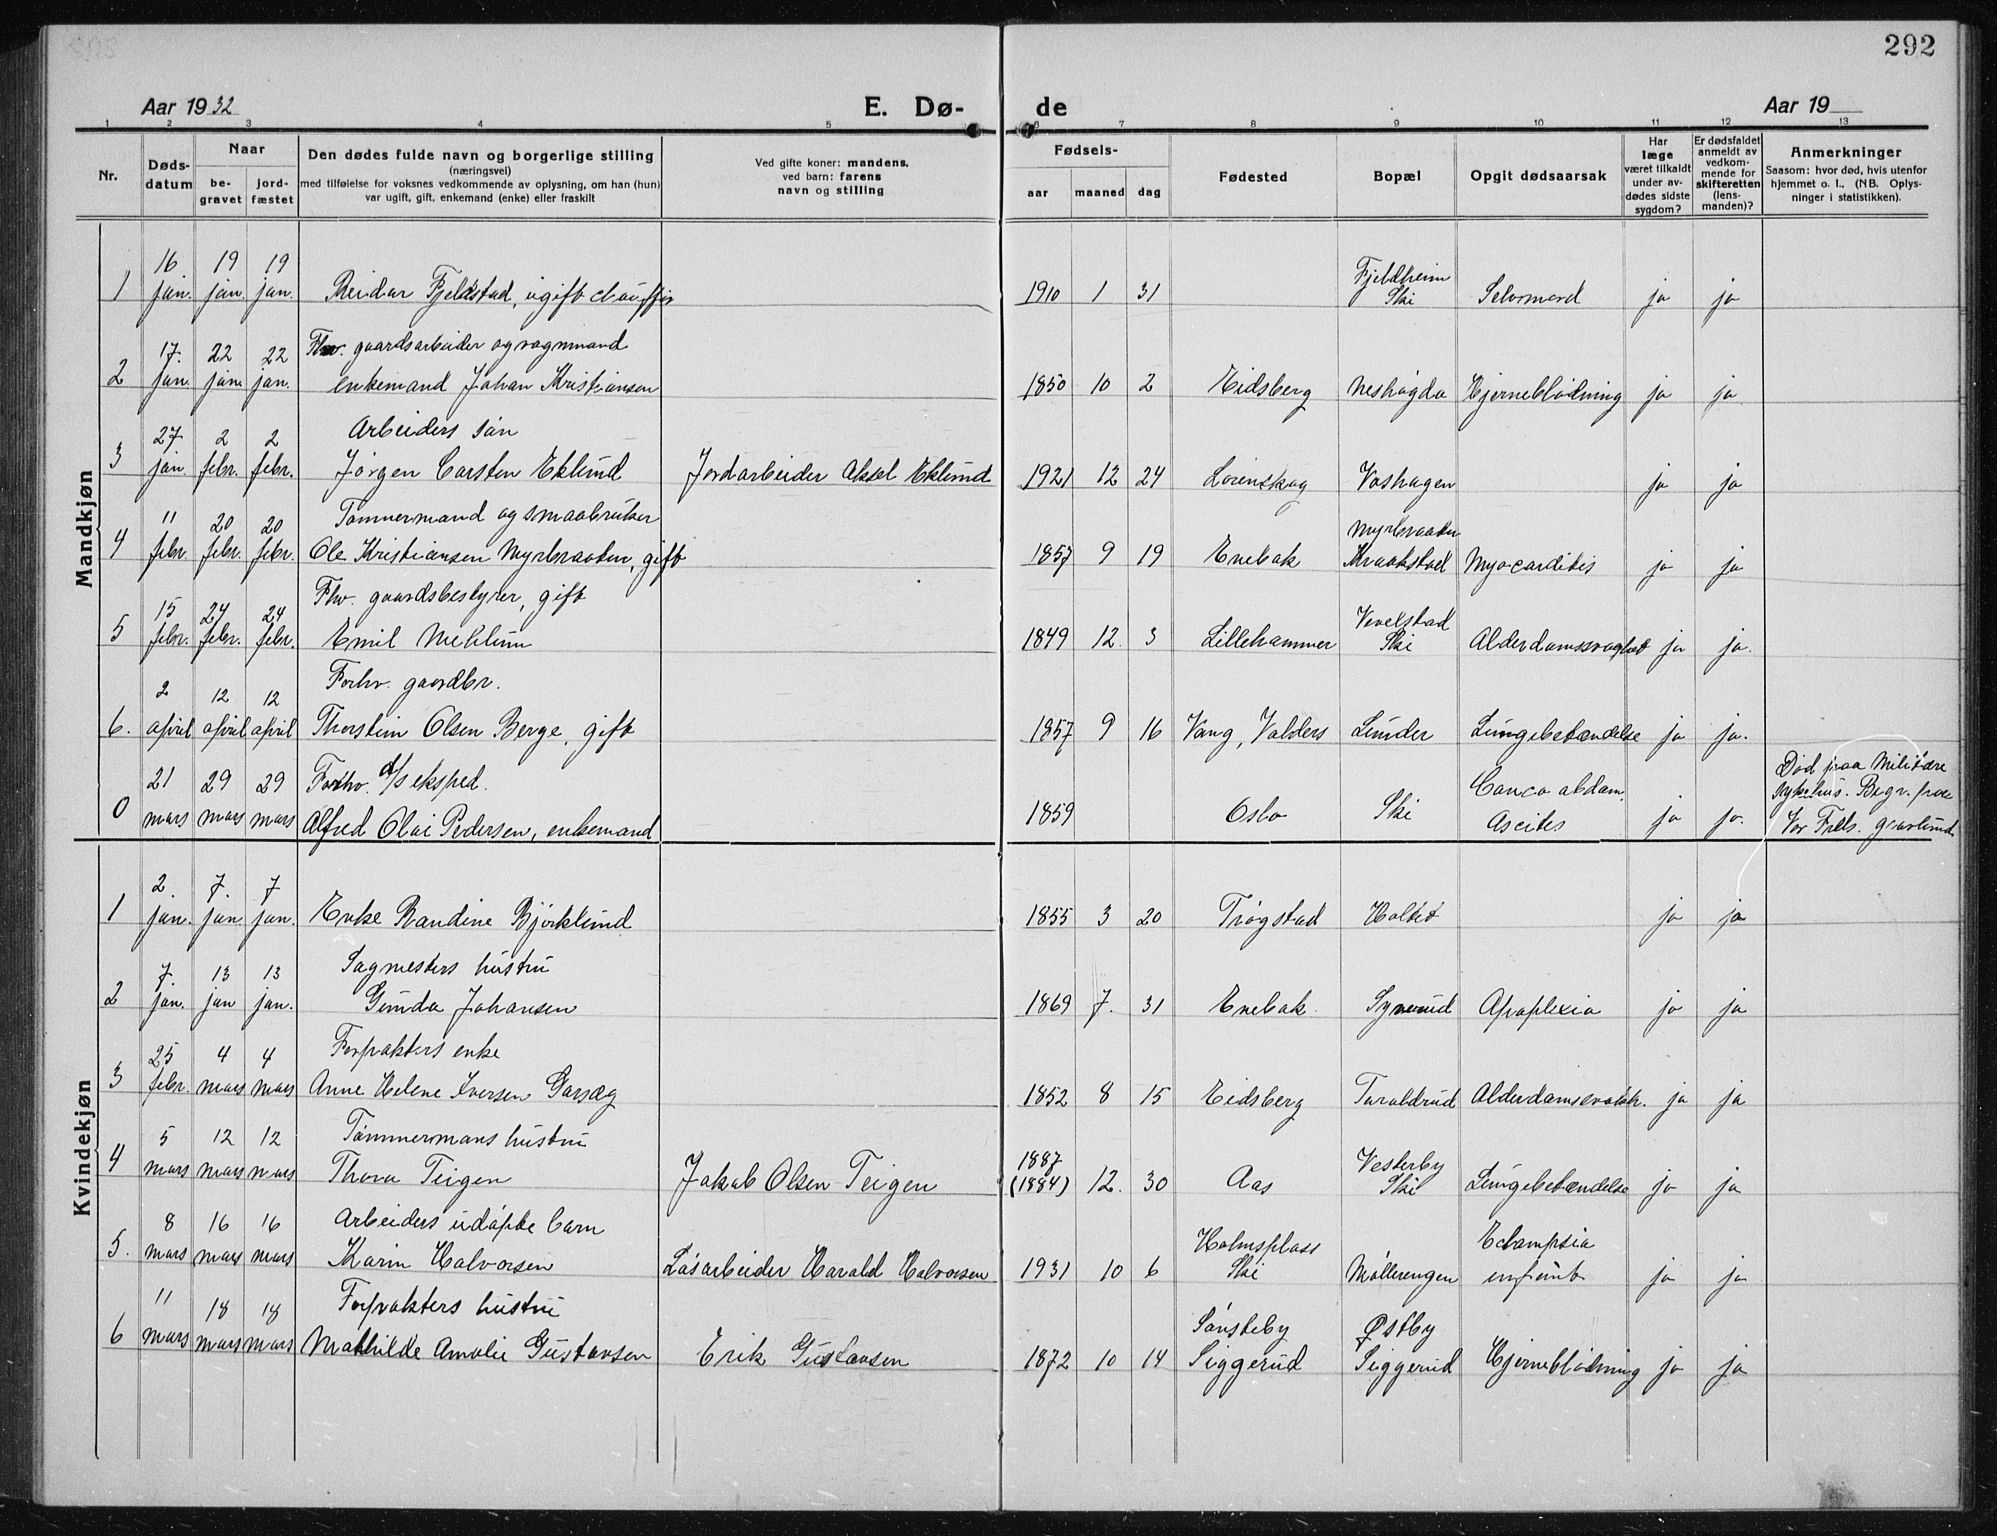 292
Aar 1932
E. Dø-
de
Aar 19
1 2 3 4 5 6 7 8 9 10 11 12 13
Nr.
Døds-
datum
Naar
be-
gravet
jord-
fæstet
Den dødes fulde navn og borgerlige stilling
(næringsvei)
med tilføielse for voksnes vedkommende av oplysning, om han (hun)
var ugift, gift, enkemand (enke) eller fraskilt
Ved gifte koner: mandens,
ved barn: farens
navn og stilling
Fødsels-
aar
maaned
dag
Fødested
Bopæl
Opgit dødsaarsak
Har
læge
været tilkaldt
under av-
dødes sidste
sygdom?
Er dødsfaldet
anmeldt av
vedkom-
mende for
skifteretten
(lens-
manden)?
Anmerkninger
Saasom: hvor død, hvis utenfor
hjemmet o. l., (NB. Oplys-
ninger i statistikken).
Mandkjøn
16 19 19 Fjeldheim
1 jan. jan. jan. Reidar Fjeldstad, ugift chauffør 1910 1 31 Ski Selvmord ja ja
17. 22 22 Fhv. gaardsarbeider og vognmand
2 jan. jan. jan. enkemand Johan Kristiansen 1850 10 2 Eidsberg Neshøgda Hjerneblødning ja ja
27 2 2 Arbeiders søn
3 jan. febr. febr. Jørgen Carsten Eklund Jordarbeider Aksel Eklund 1921 12 24 Lørenskog Voshagen ja ja
11 20 20 Tømmermand og smaabruker Myrbraaten
4 febr. febr. febr. Ole Kristiansen Myrbraaten, gift 1857 9 19 Enebak Kraakstad Myocarditis ja ja
15 24 24 Fhv. gaardsbestyrer, gift Vevelstad
5 febr. febr. febr. Emil Mehlum 1849 12. 3 Lillehammer Ski Alderdomssvaghet ja ja.
2 12 12 Forhv. gaardbr.
6. april april april Thorstein Olsen Berge, gift 1857 9 16 Vang, Valders Lunder Lungebetændelse ja ja.
21 29 29 Forhv. d/s eksped. Cancer abdom. Død paa Militære
sykehus. Begr. paa
0 mars mars mars Alfred Olai Pedersen, enkemand 1859 Oslo Ski Ascites ja ja. Vor Frels. gravlund
Kvindekjøn
2. 7. 7
1 jan. jan. jan. Enke Randine Bjørklund 1855 3 20 Trøgstad Holtet ja ja
7. 13 13 Sagmesters hustru
2 jan. jan jan. Gunda Johansen 1869 7. 31 Enebak Apoplexia ja ja
25 4 4 Forpakters enke
3 febr. mars mars Anne Helene Iversen Garsæg 1852 8 15 Eidsberg Taraldrud Alderdomssvakh. ja ja
5 12 12 Tømmermans hustru 1887 Vesterby
4 mars mars mars Thora Teigen Jakob Olsen Teigen (1884) 12. 30 Aas Ski Lungebetændelse ja ja
8 16 16 Arbeiders udøpte barn Holmsplass Eclampsia
5. mars mars mars Karin Halvorsen Løsarbeider Harald Halvorsen 1931 10 6 Ski Møllerengen infant ja ja
11 18 18 Forpakters hustru Sønsteby Østby
6 mars mars mars Mathilde Amalie Gustavsen Erik Gustavsen 1872 10 14 Siggerud Siggerud Hjerneblødning ja ja